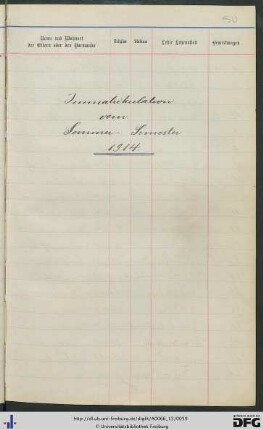 Name und Wohnort
der Eltern oder des Vormunds
Religion
Letzte Lehranstalt
Bemerkungen
Immatrikulation
vom
Sommer-Semester
1914
http://dl.ub.uni-freiburg.de/diglit/A0066_12/0053
© Universitätsbibliothek Freiburg
DFG